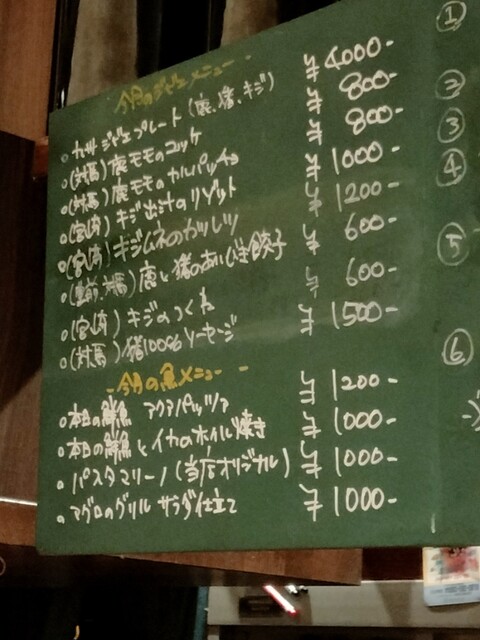 今月のジビエメニュー
。九州ジビエプレート(鹿、猪、キジ) ¥4000-
。(対馬)鹿モモのコロッケ ¥800-
。(対馬)鹿モモのカルパッチョ ¥800-
。(宮崎)キジ出汁のリゾット ¥1000-
。(宮崎)キジムネのカツレツ ¥1200-
。(豊前、対馬)鹿と猪のあいびき餃子 ¥600-
。(宮崎)キジのつくね ¥600-
。(対馬)猪100%ソーセージ ¥1500-
-今月の魚メニュー-
。本日の鮮魚 アクアパッツァ ¥1200-
。本日の鮮魚とイカのホイル焼き ¥1000-
。パスタマリーノ(当店オリジナル) ¥1000-
。マグロのグリル サラダ仕立て ¥1000-
①
②
③
④
⑤
⑥